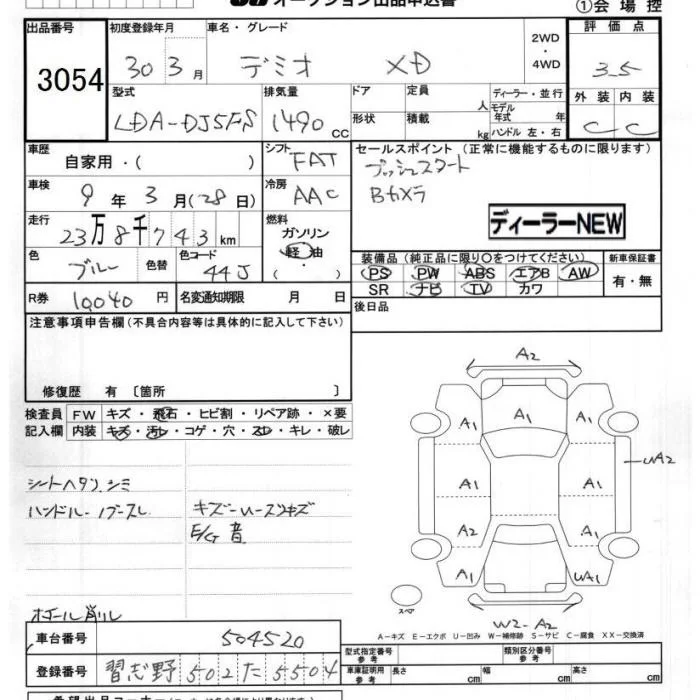 オークション出品申込書
①会場控
出品番号 初度登録年月 車名・グレード 評価点
3054 30 3月 デミオ XD 2WD・4WD 3.5
型式 排気量 ドア 定員 人 ディーラー・並行 外装 内装
LDA-DJ5FS 1490 CC 形状 積載 kg モデル年式 年 ハンドル 左・右 C C
車歴 自家用・( ) シフト FAT セールスポイント (正常に機能するものに限ります)
プッシュスタート
車検 9年3月(28日) 冷房 AAC Bカメラ
走行 23万8千743km 燃料 ガソリン 軽油 ( ) ディーラーNEW
色 ブルー 色替 色コード 44J 装備品 (純正品に限り〇をつけてください) 新車保証書
PS PW ABS エアB AW 有・無
SR ナビ TV カワ
R券 10040円 名変通知期限 月 日 後日品
注意事項申告欄(不具合内容等は具体的に記入して下さい)
修復歴 有 〔箇所 〕
検査員 FW キズ・飛石・ヒビ割・リペア跡・×要
記入欄 内装 キズ・汚レ・コゲ・穴・スレ・キレ・破レ
シートヘタリ、シミ
ハンドル・ノブスレ
E/G 音
ホイール削レ
A2
A1 A1 A1
A1 A1 UA2
A2 A1
A1 UA1
スペア
W2-A2
A-キズ E-エクボ U-凹み W-補修跡 S-サビ C-腐食 XX-交換済
車台番号 504520
型式指定番号 参考 類別区分番号 参考
登録番号 習志野502た5504
車庫証明用 参考 長さ cm 幅 cm 高さ cm